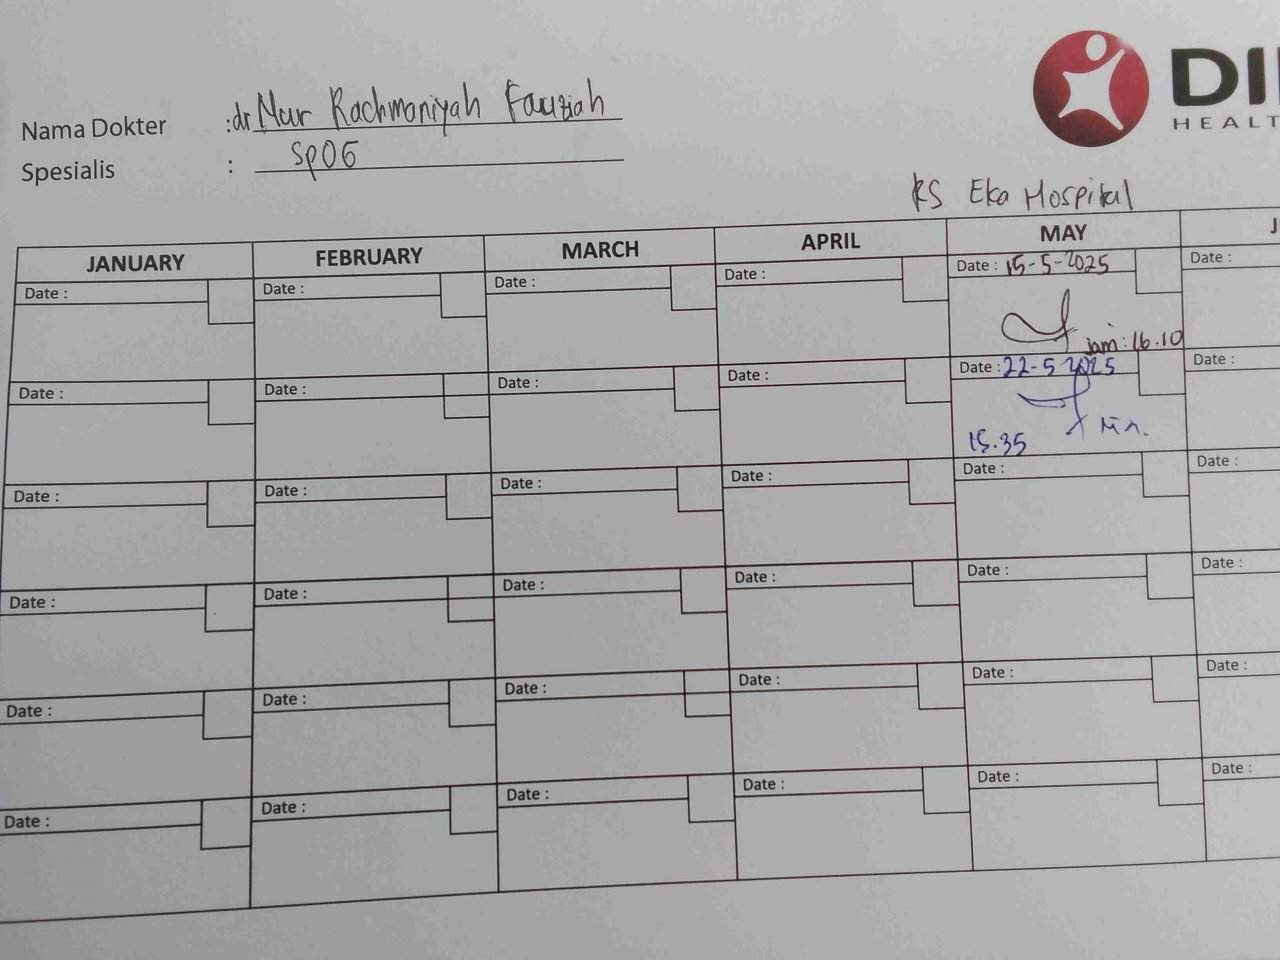 DI
HEALT
Nama Dokter : dr Nur Rachmaniyah Fauziah
Spesialis : SpOG
RS Eka Hospital
JANUARY FEBRUARY MARCH APRIL MAY J
Date : Date : Date : Date : Date : 15-5-2025 Date :
jam : 16.10
Date : Date : Date : Date : Date : 22-5-2025 Date :
15.35
Date : Date : Date : Date : Date : Date :
Date : Date : Date : Date : Date : Date :
Date : Date : Date : Date : Date : Date :
Date : Date : Date : Date : Date : Date :